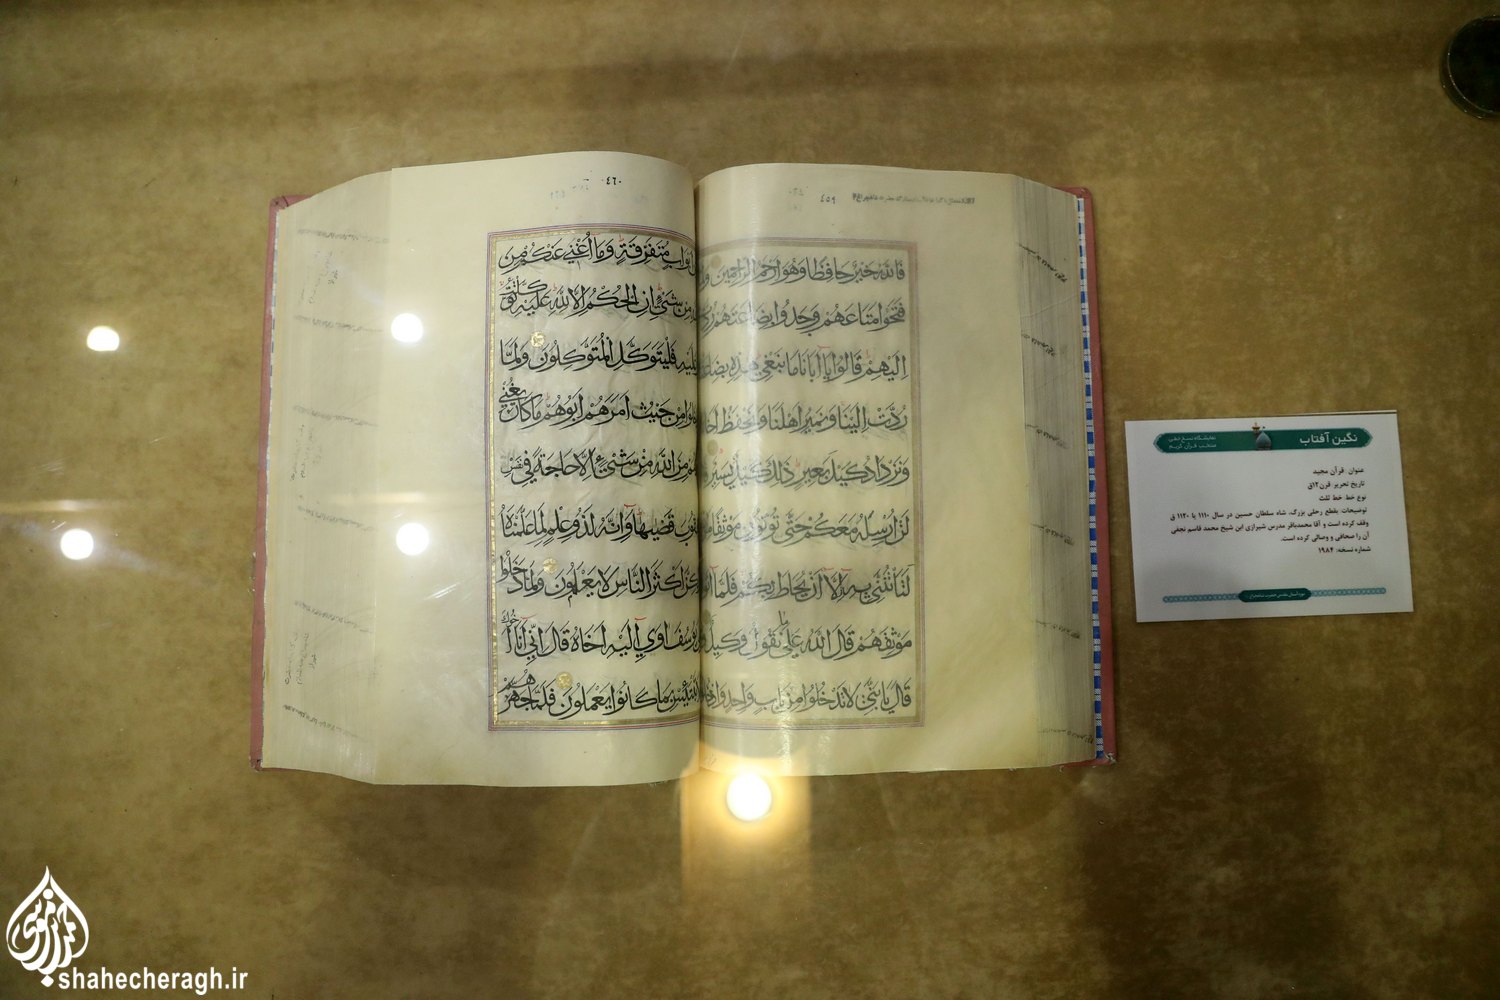 ٤٥٩
فالله خير حافظا وهو ارحم الراحمين
فتحوا متاعهم وجدوا بضاعتهم
اليهم قالوا يا ابانا ما نبغي هذه
ردت الينا ونمير اهلنا ونحفظ
ونزداد كيل بعير ذلك كيل يسير
لن ارسله معكم حتى تؤتون موثقا
لتأتنني به الا ان يحاط بكم فلما
موثقهم قال الله على ما نقول وكيل
قال يا بني لا تدخلوا من باب واحد
٤٦٠
متفرقة وما اغني عنكم من
من شيء ان الحكم الا لله عليه توكلت
فليتوكل المتوكلون ولما
من حيث امرهم ابوهم ما كان يغني
من الله من شيء الا حاجة في نفس
قضيها وانه لذو علم لما علمناه
اكثر الناس لا يعلمون ولما دخلوا
اوي اليه اخاه قال اني انا اخوك
بما كانوا يعملون فلما جهزهم
نگین آفتاب
نمایشگاه نسخ خطی
منتخب قرآن کریم
عنوان: قرآن مجید
تاریخ تحریر: قرن ۱۲ق
نوع خط: خط ثلث
توضیحات: بقطع رحلی بزرگ، شاه سلطان حسین در سال ۱۱۱۰ یا ۱۱۲۰ ق
وقف کرده است و آقا محمدباقر مدرس شیرازی ابن شیخ محمد قاسم نجفی
آن را صحافی و وصالی کرده است.
شماره نسخه: ۱۹۸۴
shahecheragh.ir